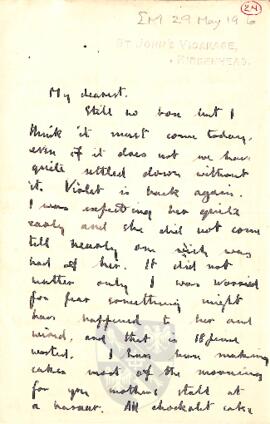 ΣM 29 May 19 6
24
ST JOHN'S VICARAGE,
BIRKENHEAD.
My dearest.
Still no but I
think it must come today,
even if it does not we have
quite settled down without
it. Violet is back again.
I was expecting her quite
early and she did not come
till nearly one which was
bad of her. It did not
matter only I was worried
for fear something might
have happened to her and
mind, and that is
wasted. I have been making
cakes most of the morning
for your mothers stall at
a bazaar. All chockolet cakes